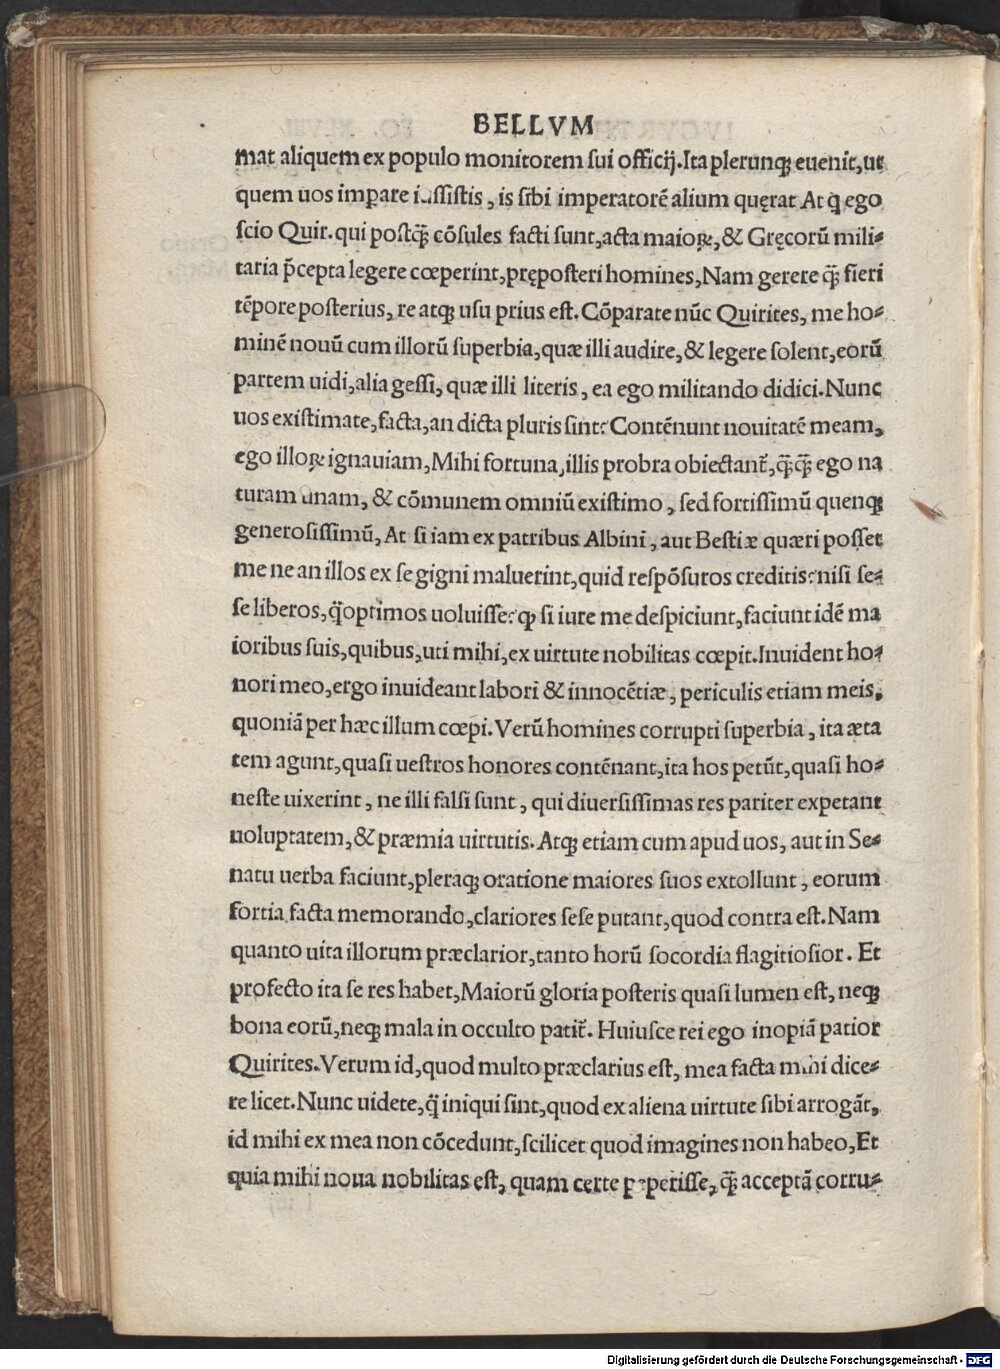 BELLVM
mat aliquem ex populo monitorem sui officij.Ita plerunq; euenit,ut
quem uos impare iussistis, is sibi imperatorē alium quęrat At q̄ ego
scio Quir.qui postq̄ cōsules facti sunt,acta maioꝝ,& Gręcorū mili-
taria p̄cepta legere cœperint,pręposteri homines,Nam gerere q̄ fieri
tēpore posterius, re atq; usu prius est. Cōparate nūc Quirites, me ho-
minē nouū cum illorū superbia,quæ illi audire,& legere solent,eorū
partem uidi,alia gessi, quæ illi literis, ea ego militando didici.Nunc
uos existimate,facta,an dicta pluris sint? Contēnunt nouitatē meam,
ego illoꝝ ignauiam,Mihi fortuna,illis probra obiectant᷑,q̄q̄ ego na
turam unam, & cōmunem omniū existimo, sed fortissimū quenq;
generosissimū, At si iam ex patribus Albini, aut Bestiæ quæri posset
me ne an illos ex se gigni maluerint,quid respōsuros creditis?nisi se-
se liberos,q̄optimos uoluisse? ꝙ si iure me despiciunt,faciunt idē ma
ioribus suis,quibus,uti mihi,ex uirtute nobilitas cœpit.Inuident ho-
nori meo,ergo inuideant labori & innocētiæ, periculis etiam meis,
quoniā per hæc illum cœpi. Verū homines corrupti superbia, ita æta
tem agunt,quasi uestros honores contēnant,ita hos petūt,quasi ho-
neste uixerint, ne illi falsi sunt, qui diuersissimas res pariter expetant
uoluptatem,& præmia uirtutis. Atq; etiam cum apud uos, aut in Se-
natu uerba faciunt,pleraq; oratione maiores suos extollunt, eorum
fortia facta memorando,clariores sese putant,quod contra est. Nam
quanto uita illorum præclarior,tanto horū socordia flagitiosior. Et
profecto ita se res habet,Maiorū gloria posteris quasi lumen est, neq;
bona eorū,neq; mala in occulto patit᷑. Huiusce rei ego inopiā patior
Quirites.Verum id,quod multo præclarius est, mea facta mihi dice-
re licet.Nunc uidete,q̄ iniqui sint,quod ex aliena uirtute sibi arrogāt,
id mihi ex mea non cōcedunt,scilicet quod imagines non habeo,Et
quia mihi noua nobilitas est, quam certe peperisse, q̄ acceptā corru-
Digitalisierung gefördert durch die Deutsche Forschungsgemeinschaft - DFG